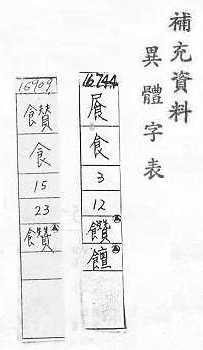 補充資料
異體字表
16744
展
食
3
12
饡
饘
16909
饡
食
15
23
饡